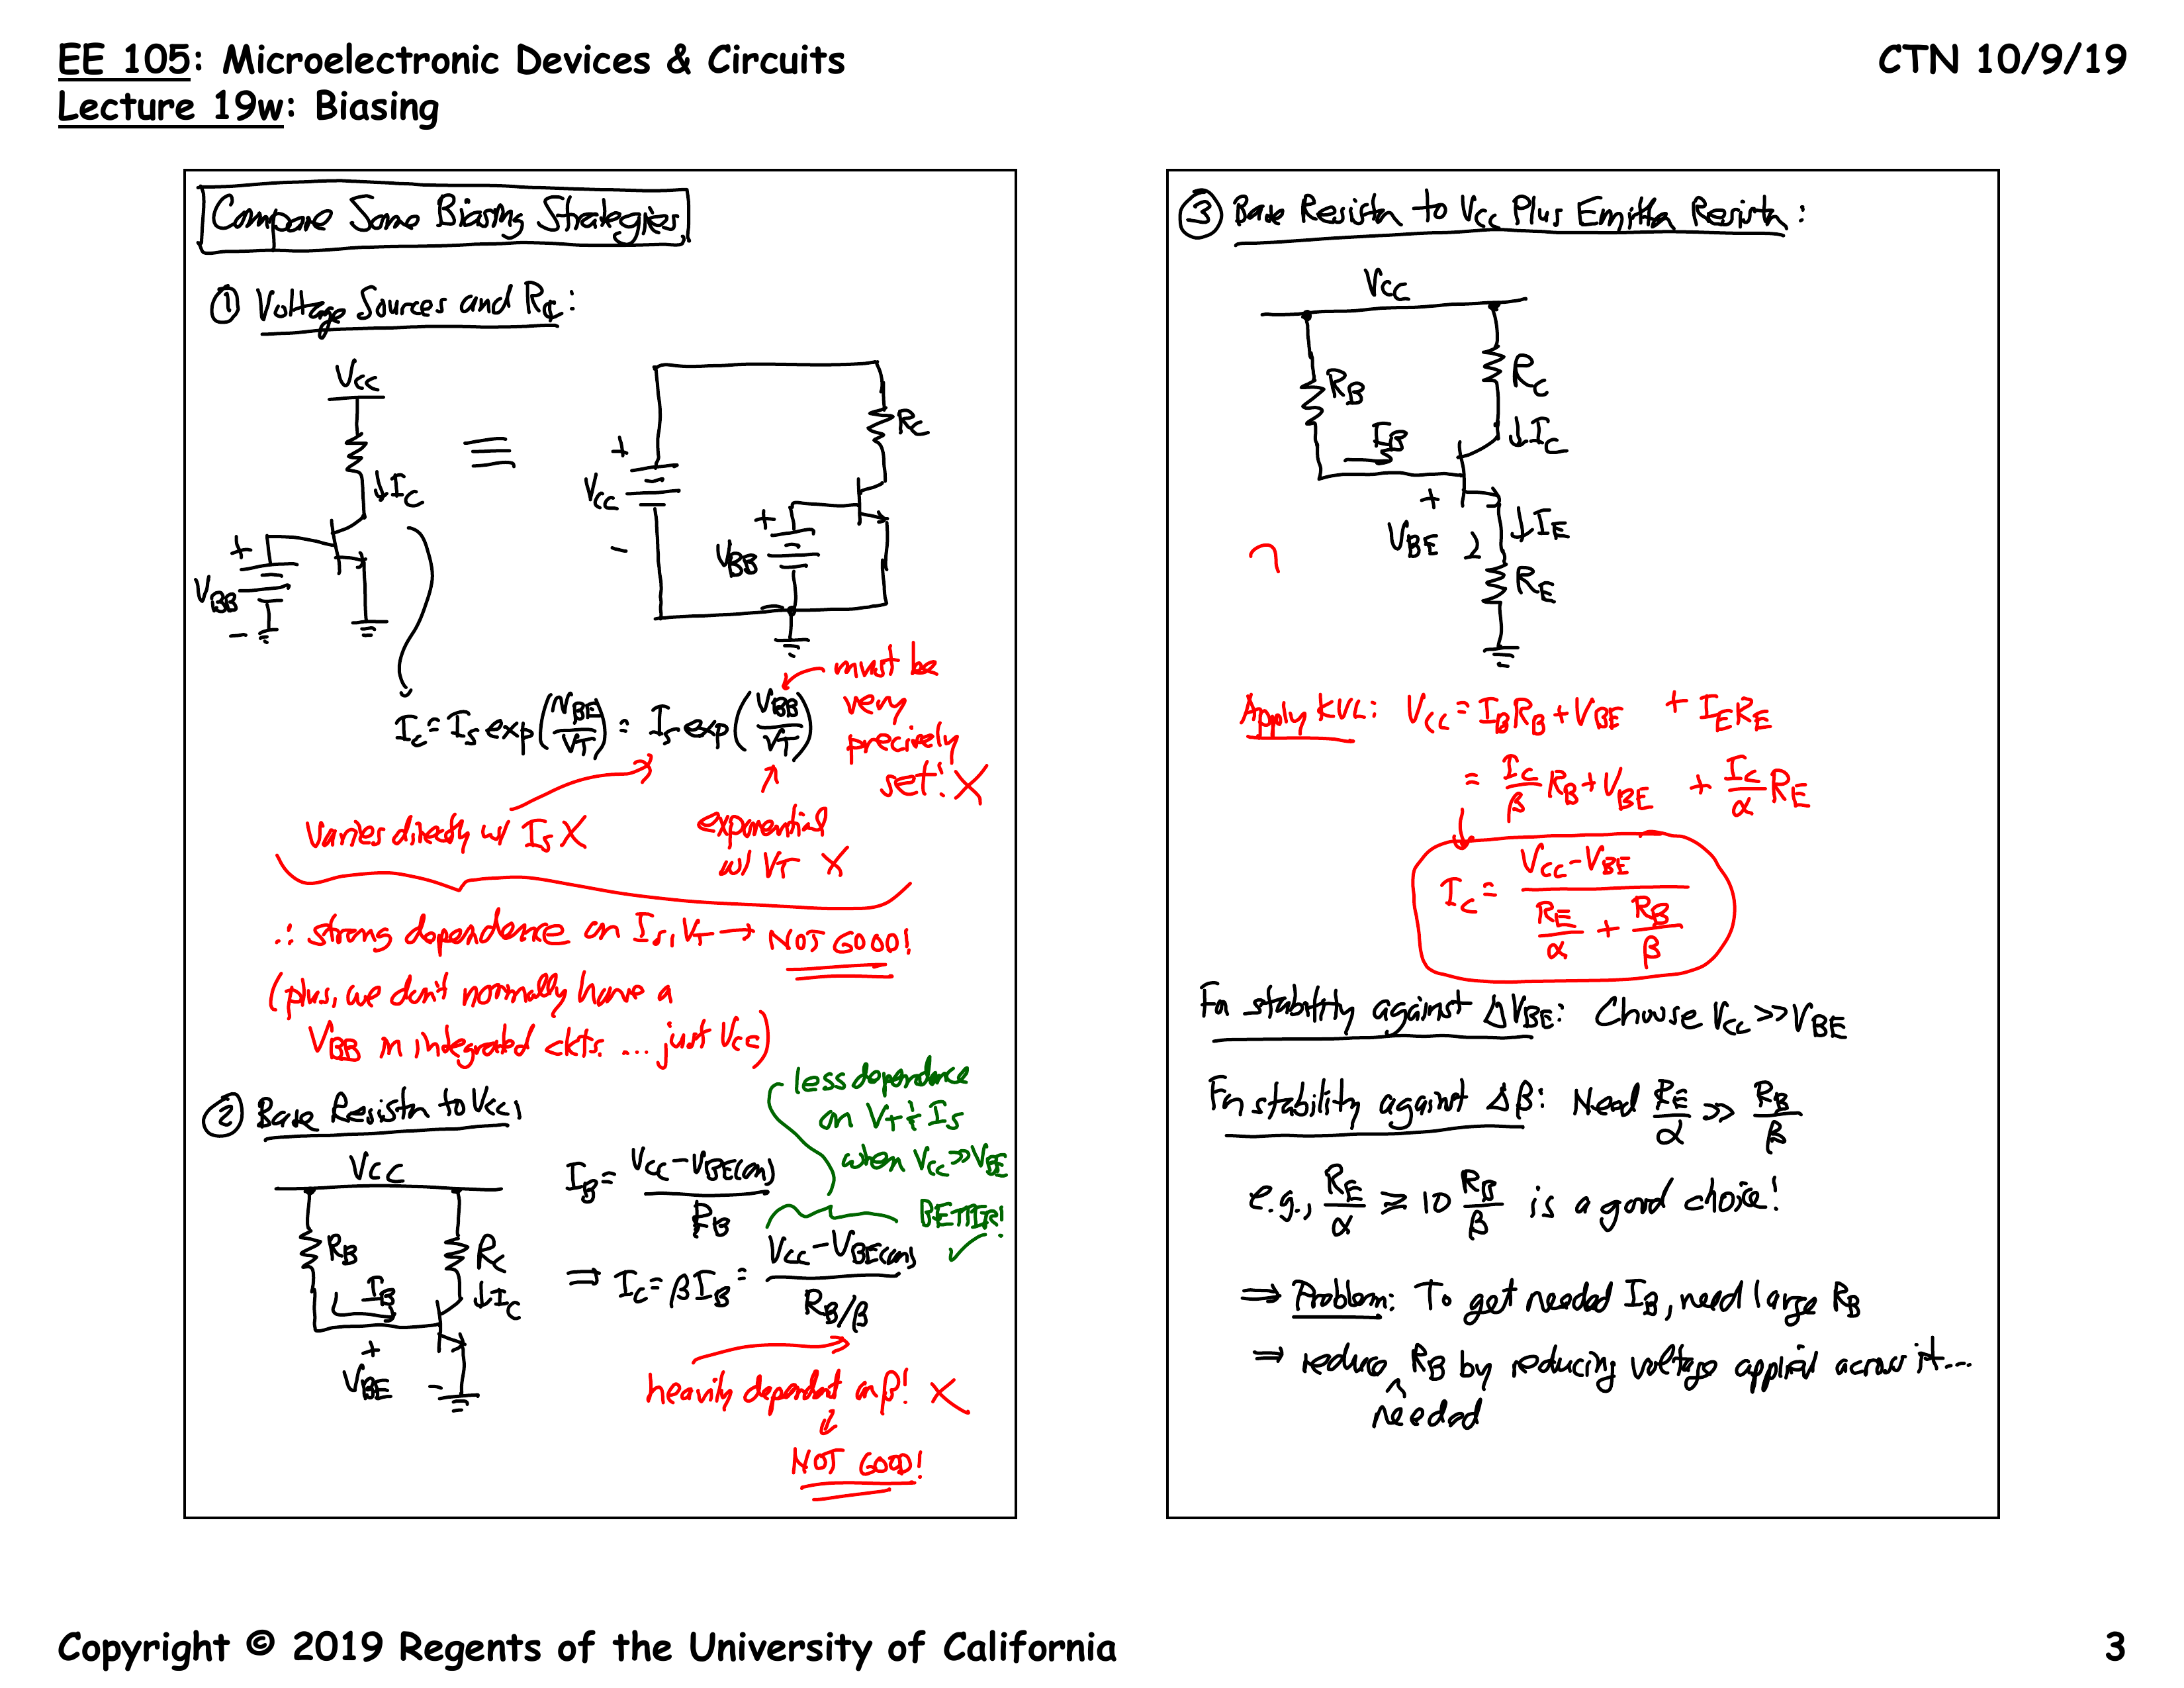 EE 105: Microelectronic Devices & Circuits
CTN 10/9/19
Lecture 19w: Biasing
Compare Some Biasing Strategies
① Voltage Sources and RC:
VCC
↓IC
+
VBB
-
≡
RC
+
VCC
-
+
VBB
-
IC = IS exp(VBE/VT) = IS exp(VBB/VT)
must be
very
precisely
set! X
varies directly w/ IS X
exponential
w/ VT X
∴ strong dependence on IS, VT → NOT GOOD!
(plus, we don't normally have a
VBB in integrated ckts. ... just VCC)
② Base Resistor to VCC,
VCC
RB
RC
IB
↓IC
+
VBE
-
IB = (VCC - VBE(on))/RB
⇒ IC = βIB = (VCC - VBE(on))/(RB/β)
less dependence
on VT & IS
when VCC >> VBE
BETTER! ✓
heavily dependent on β! X
↓
NOT GOOD!
③ Base Resistor to VCC Plus Emitter Resistor:
VCC
RB
RC
IB
↓IC
+
VBE
↓IE
RE
Apply KVL: VCC = IBRB + VBE + IERE
= IC/β RB + VBE + IC/α RE
IC = (VCC - VBE)/(RE/α + RB/β)
For stability against ΔVBE: Choose VCC >> VBE
For stability against Δβ: Need RE/α >> RB/β
e.g., RE/α ≥ 10 RB/β is a good choice!
⇒ Problem: To get needed IB, need large RB
⇒ reduce RB by reducing voltage applied across it...
^
needed
Copyright © 2019 Regents of the University of California
3